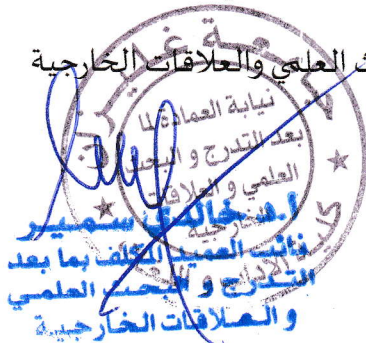 ث العلمي والعلاقات الخارجية
جامعة غليزان
نيابة العمادة لما
بعد التدرج و البحث
العلمي و العلاقات
الخارجية
أ.د خالدي سمير
نائب العميد المكلف بما بعد
التدرج و البحث العلمي
و العلاقات الخارجية